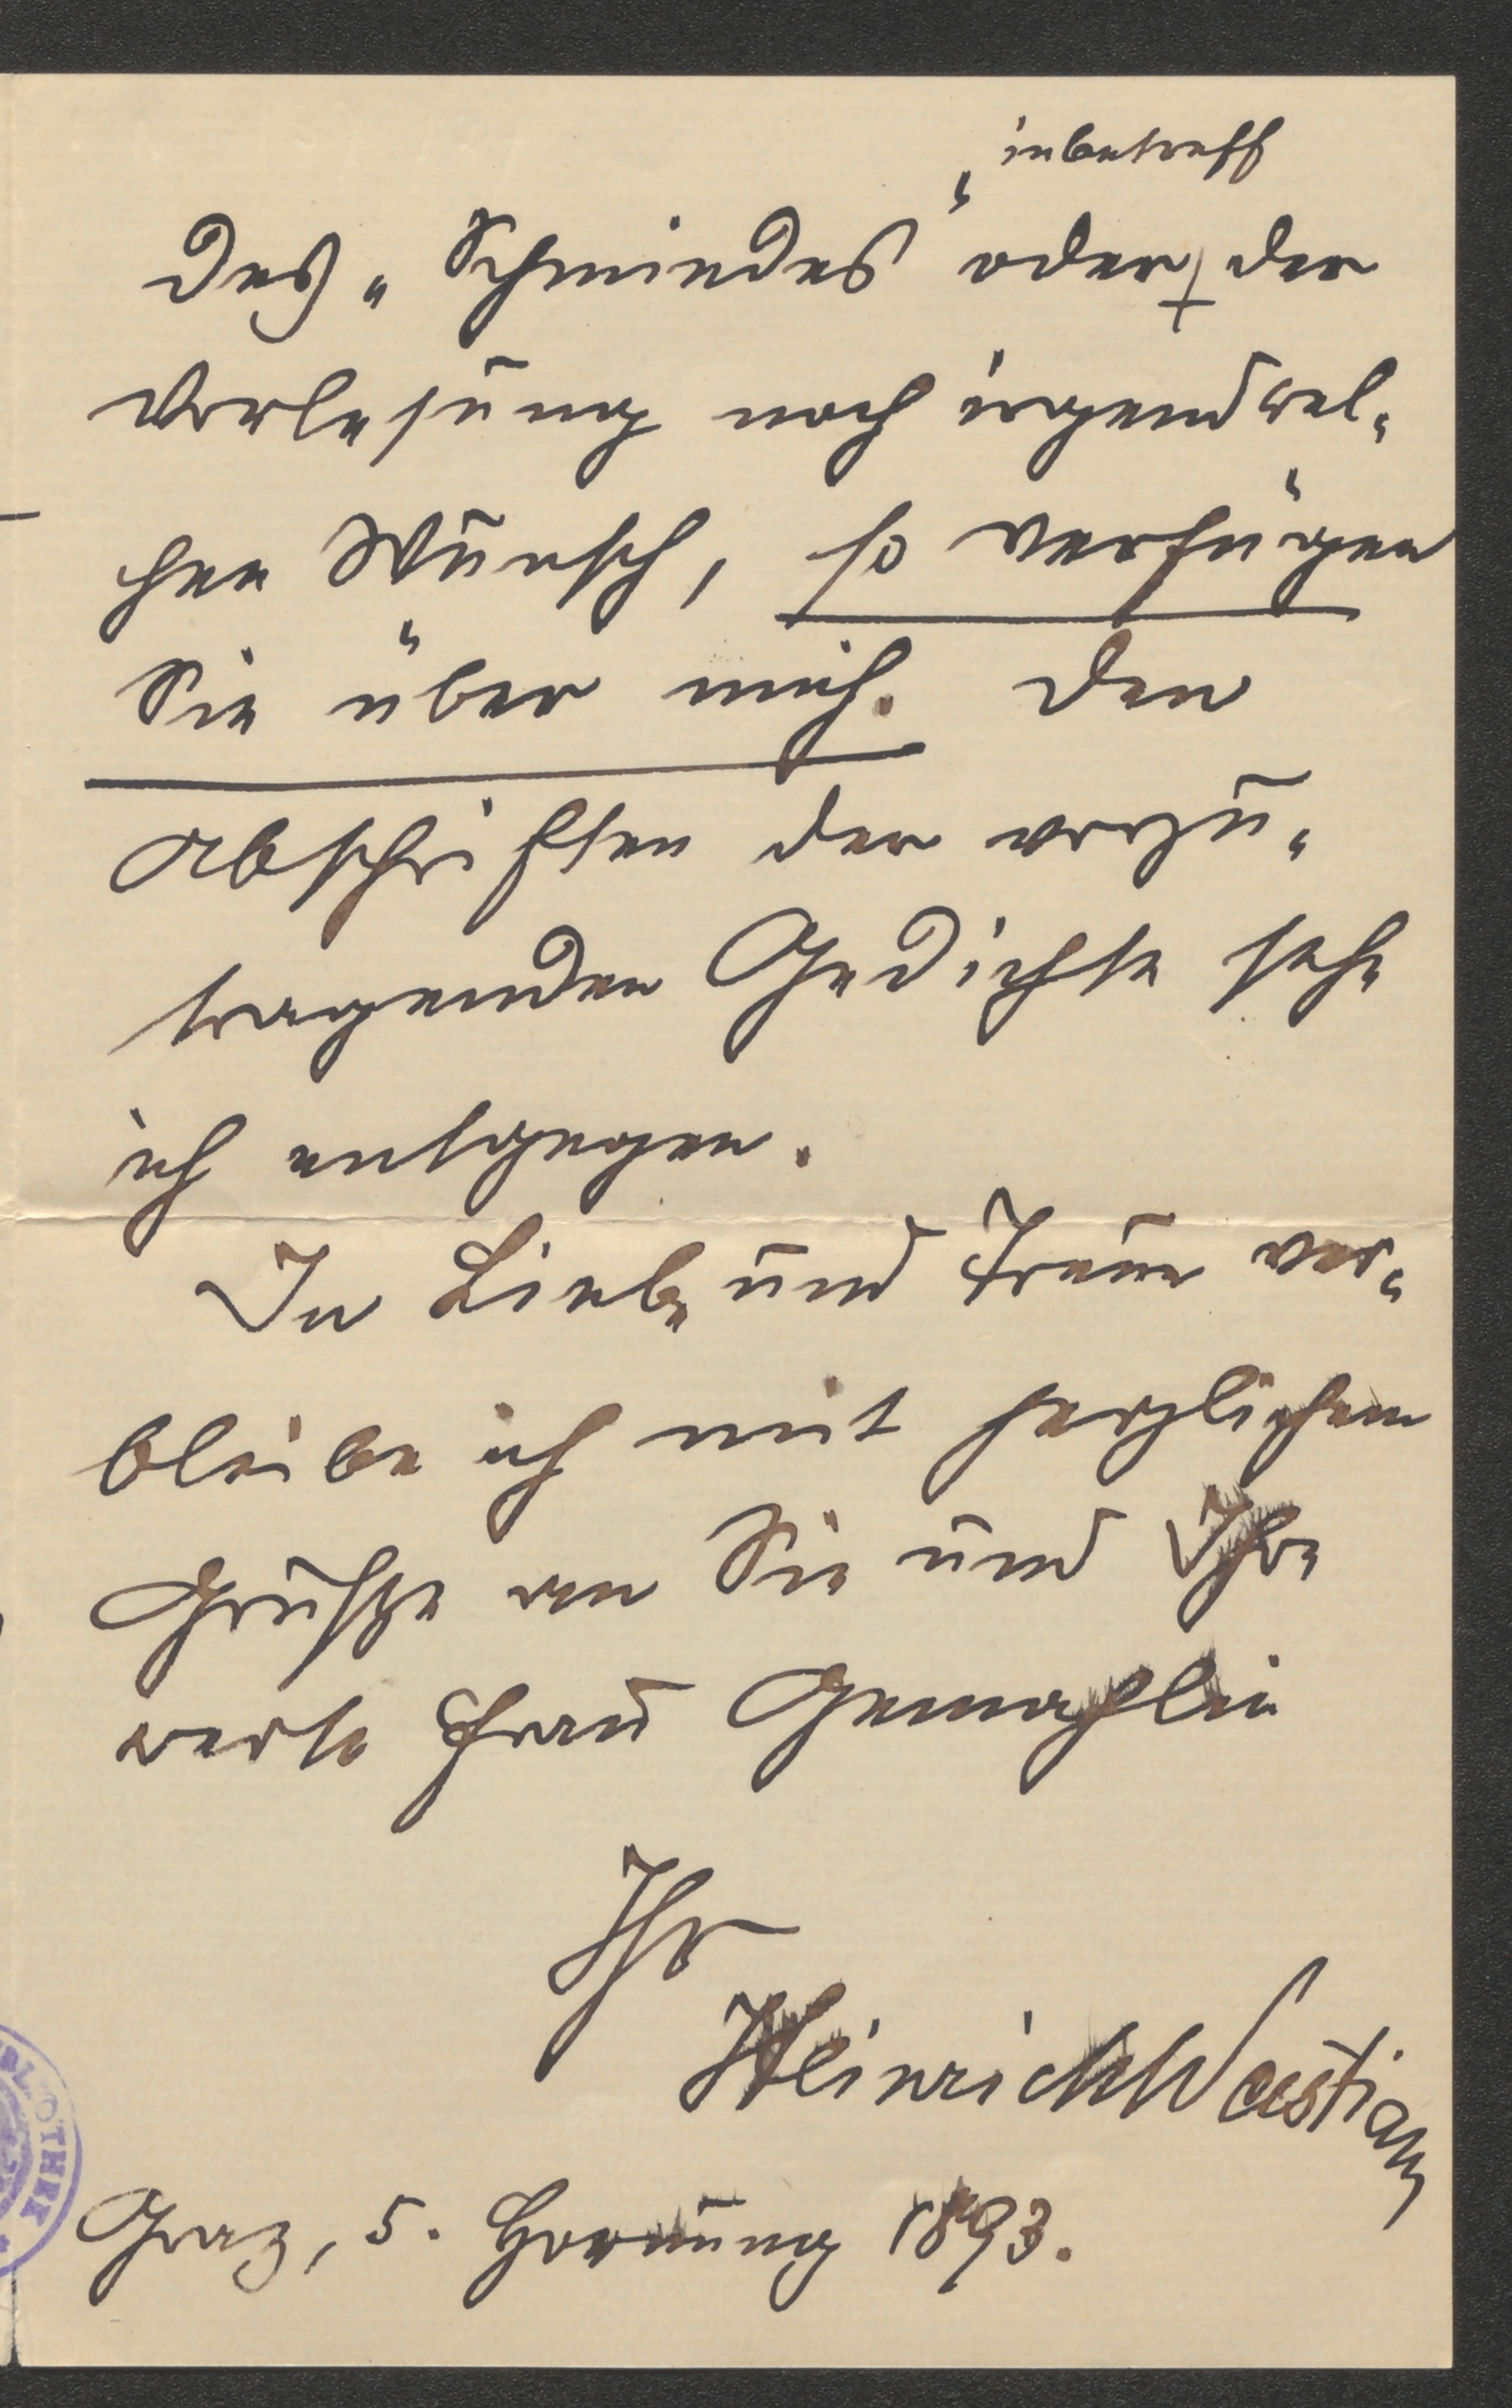 inbetreff
des „Schmiedes" oder der
Vorlesung noch irgendwel-
chen Wunsch, so verfügen
Sie über mich. Den
Abschriften der vorzu-
tragenden Gedichte sehe
ich entgegen.
In Liebe und Treue ver-
bleibe ich mit herzlichem
Gruße an Sie und Ihre
werte Frau Gemahlin
Ihr
Heinrich Wastian
Graz, 5. Hornung 1893.
OTHEK